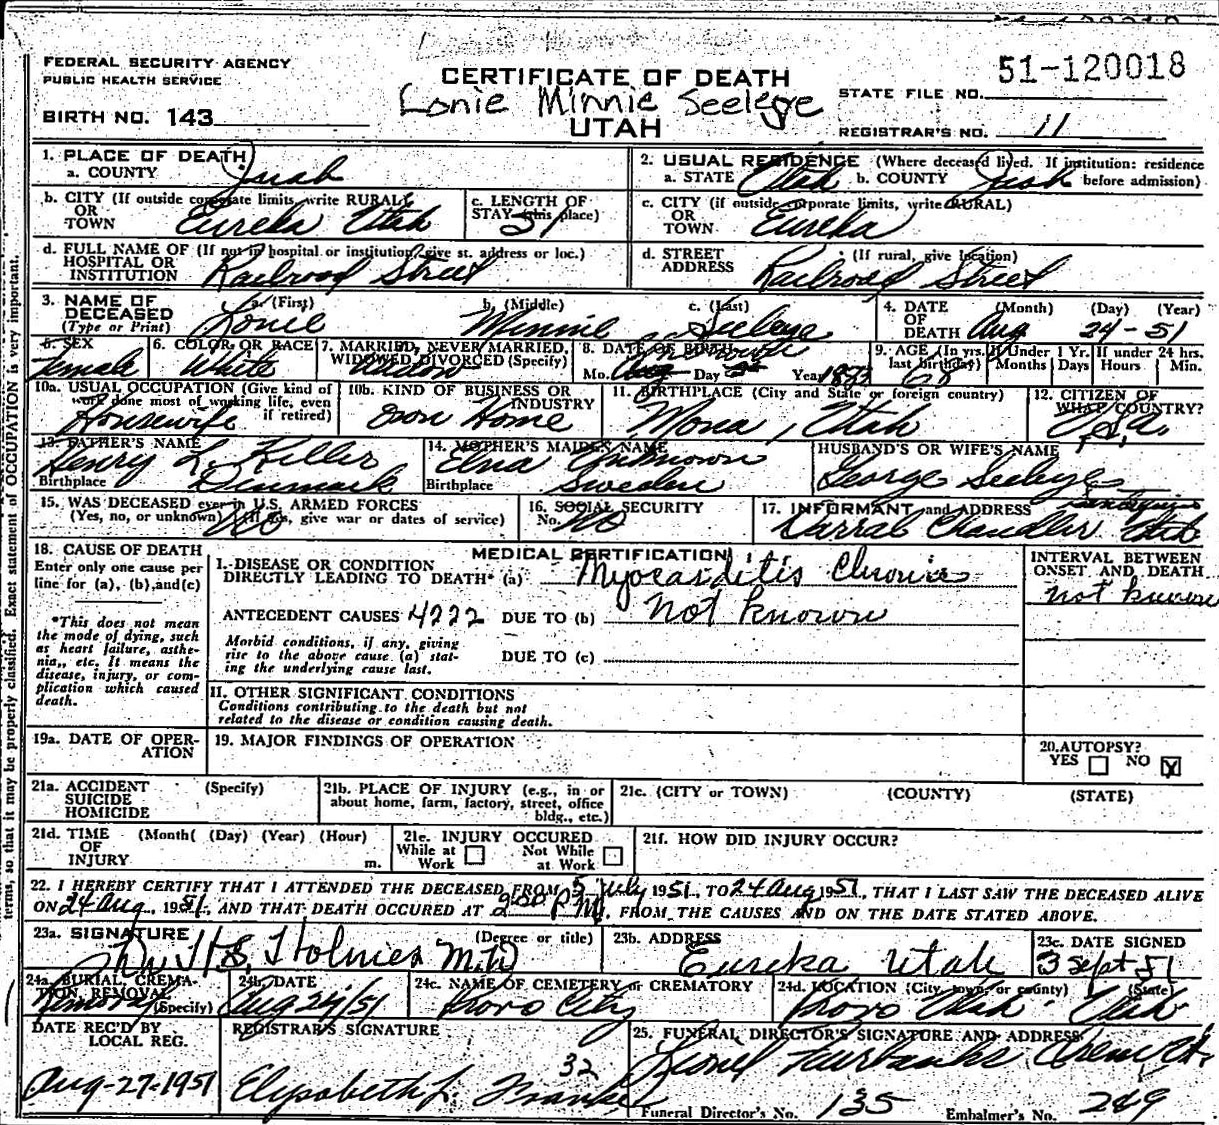 51-120018
FEDERAL SECURITY AGENCY
PUBLIC HEALTH SERVICE
CERTIFICATE OF DEATH
STATE FILE NO.
Lonie Minnie Seelege
BIRTH NO. 143
UTAH
REGISTRAR'S NO. 11
1. PLACE OF DEATH
a. COUNTY Juab
2. USUAL RESIDENCE (Where deceased lived. If institution: residence before admission)
a. STATE Utah b. COUNTY Juab
b. CITY (If outside corporate limits, write RURAL)
OR TOWN Eureka Utah
c. LENGTH OF STAY (this place) 51
c. CITY (if outside corporate limits, write RURAL)
OR TOWN Eureka
d. FULL NAME OF (If not in hospital or institution, give st. address or loc.)
HOSPITAL OR INSTITUTION Railroad Street
d. STREET ADDRESS (If rural, give location)
Railroad Street
3. NAME OF DECEASED (Type or Print)
a. (First) b. (Middle) c. (Last)
Lonie Minnie Seeleye
4. DATE OF DEATH (Month) (Day) (Year)
Aug 24-51
5. SEX
Female
6. COLOR OR RACE
White
7. MARRIED, NEVER MARRIED, WIDOWED, DIVORCED (Specify)
Widow
8. DATE OF BIRTH
Mo. Day Year 1883
9. AGE (In yrs. last birthday) 68
If Under 1 Yr. Months Days
If under 24 hrs. Hours Min.
10a. USUAL OCCUPATION (Give kind of work done most of working life, even if retired)
Housewife
10b. KIND OF BUSINESS OR INDUSTRY
Own Home
11. BIRTHPLACE (City and State or foreign country)
Mona, Utah
12. CITIZEN OF WHAT COUNTRY?
U.S.A.
13. FATHER'S NAME
Henry L. Keller
Birthplace Denmark
14. MOTHER'S MAIDEN NAME
Elna Unknown
Birthplace Sweden
HUSBAND'S OR WIFE'S NAME
George Seeleye
15. WAS DECEASED ever in U.S. ARMED FORCES
(Yes, no, or unknown) (If yes, give war or dates of service)
No
16. SOCIAL SECURITY
No. No
17. INFORMANT and ADDRESS Santaquin
Darral Chandler Utah
18. CAUSE OF DEATH
Enter only one cause per line for (a), (b), and (c)
*This does not mean the mode of dying, such as heart failure, asthenia, etc. It means the disease, injury, or complication which caused death.
MEDICAL CERTIFICATION
I. DISEASE OR CONDITION DIRECTLY LEADING TO DEATH* (a) Myocarditis Chronic
INTERVAL BETWEEN ONSET AND DEATH
not known
ANTECEDENT CAUSES 4222 DUE TO (b) Not known
Morbid conditions, if any, giving rise to the above cause (a) stating the underlying cause last.
DUE TO (c)
II. OTHER SIGNIFICANT CONDITIONS
Conditions contributing to the death but not related to the disease or condition causing death.
19a. DATE OF OPERATION
19. MAJOR FINDINGS OF OPERATION
20. AUTOPSY?
YES NO X
21a. ACCIDENT SUICIDE HOMICIDE (Specify)
21b. PLACE OF INJURY (e.g., in or about home, farm, factory, street, office bldg., etc.)
21c. (CITY or TOWN) (COUNTY) (STATE)
21d. TIME OF INJURY (Month( (Day) (Year) (Hour) m.
21e. INJURY OCCURED
While at Work Not While at Work
21f. HOW DID INJURY OCCUR?
22. I HEREBY CERTIFY THAT I ATTENDED THE DECEASED FROM 5 July 1951, TO 24 Aug 1951, THAT I LAST SAW THE DECEASED ALIVE
ON 24 Aug., 1951, AND THAT DEATH OCCURED AT 2:00 P M., FROM THE CAUSES AND ON THE DATE STATED ABOVE.
23a. SIGNATURE (Degree or title)
H.S. Holmes M.D.
23b. ADDRESS
Eureka Utah
23c. DATE SIGNED
3 Sept 51
24a. BURIAL, CREMATION, REMOVAL (Specify)
24b. DATE
Aug 24/51
24c. NAME OF CEMETERY or CREMATORY
Provo City
24d. LOCATION (City, town, or county) (State)
Provo Utah Utah
DATE REC'D BY LOCAL REG.
Aug-27-1951
REGISTRAR'S SIGNATURE
32
Elysabeth L.
25. FUNERAL DIRECTOR'S SIGNATURE AND ADDRESS
Lionel Fairbanks
Funeral Director's No. 135 Embalmer's No. 249
terms, so that it may be properly classified. Exact statement of OCCUPATION is very important.